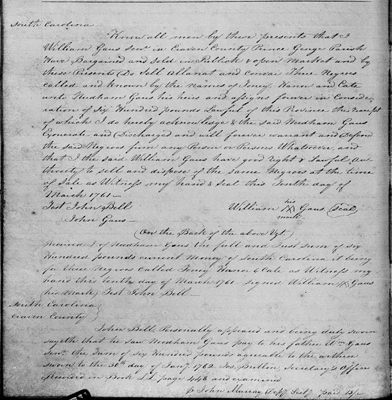 North Carolina
Know all men by these presents that I
William Gaus Senr. in Craven County Prince George Parish
Have Bargained and Sold in Publick & open Market and by
these Presents Do Sell Alianat and convae Three Negroes
called and known by the names of Jeney, Hanner and Cate
unto Needham Gaus his heirs and assigns forever in Consider-
ation of Six Hundred pounds Lawful of this Province the receipt
of which I do hereby acknowledge & the said Needham Gaus
Exonerate and Discharged and will forever warrant and Defend
the said Negroes from any Person or Persons Whatsoever and
that I the said William Gaus have good right & Lawful Au-
thority to sell and dispose of the same Negroes at the time
of Sale as Witness my hand & Seal this Tenth day of
March 1761
Test John Bell William his Gaus (Seal)
John Gaus mark
On the Back of the above Viz.
Received of Needham Gaus the full and Just Sum of six
Hundred pounds current Money of South Carolina it being
for three Negroes called Jeney Hanner & Cate as Witness my
hand this tenth day of March 1761 signed William Gaus
his Mark, Test John Bell
North Carolina
Craven County
John Bell Personally appeared and being duly sworn
sayeth that he saw Needham Gaus pay to his father Wm Gaus
Senr. the sum of six Hundred pounds agreeable to the within
sworn to the 30th day of Jany. 1762 Secretary's Office
Recorded in Book page 443 and examined
John Murray Dep. Secty.